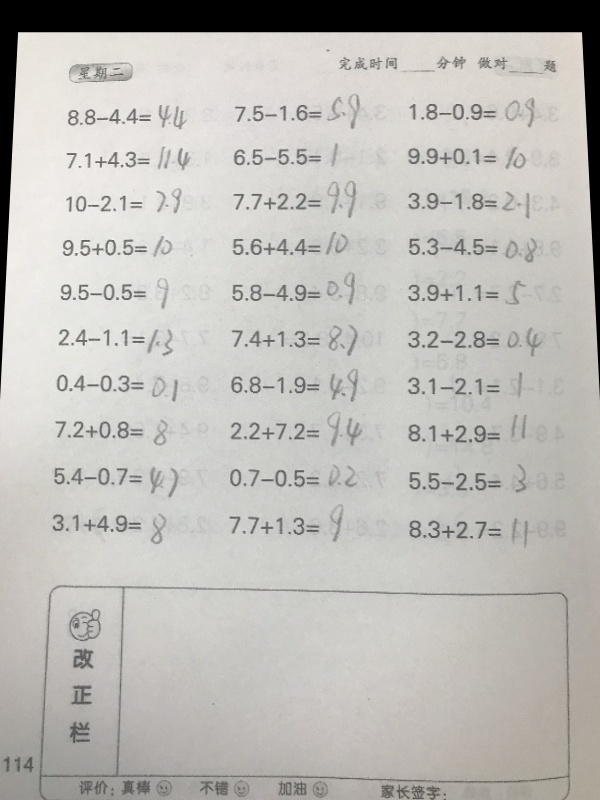 星期二 完成时间____分钟 做对____题
8.8−4.4=4.4 7.5−1.6=5.9 1.8−0.9=0.9
7.1+4.3=11.4 6.5−5.5=1 9.9+0.1=10
10−2.1=7.9 7.7+2.2=9.9 3.9−1.8=2.1
9.5+0.5=10 5.6+4.4=10 5.3−4.5=0.8
9.5−0.5=9 5.8−4.9=0.9 3.9+1.1=5
2.4−1.1=1.3 7.4+1.3=8.7 3.2−2.8=0.4
0.4−0.3=0.1 6.8−1.9=4.9 3.1−2.1=1
7.2+0.8=8 2.2+7.2=9.4 8.1+2.9=11
5.4−0.7=4.7 0.7−0.5=0.2 5.5−2.5=3
3.1+4.9=8 7.7+1.3=9 8.3+2.7=11
改正栏
114
评价：真棒 不错 加油 家长签字：